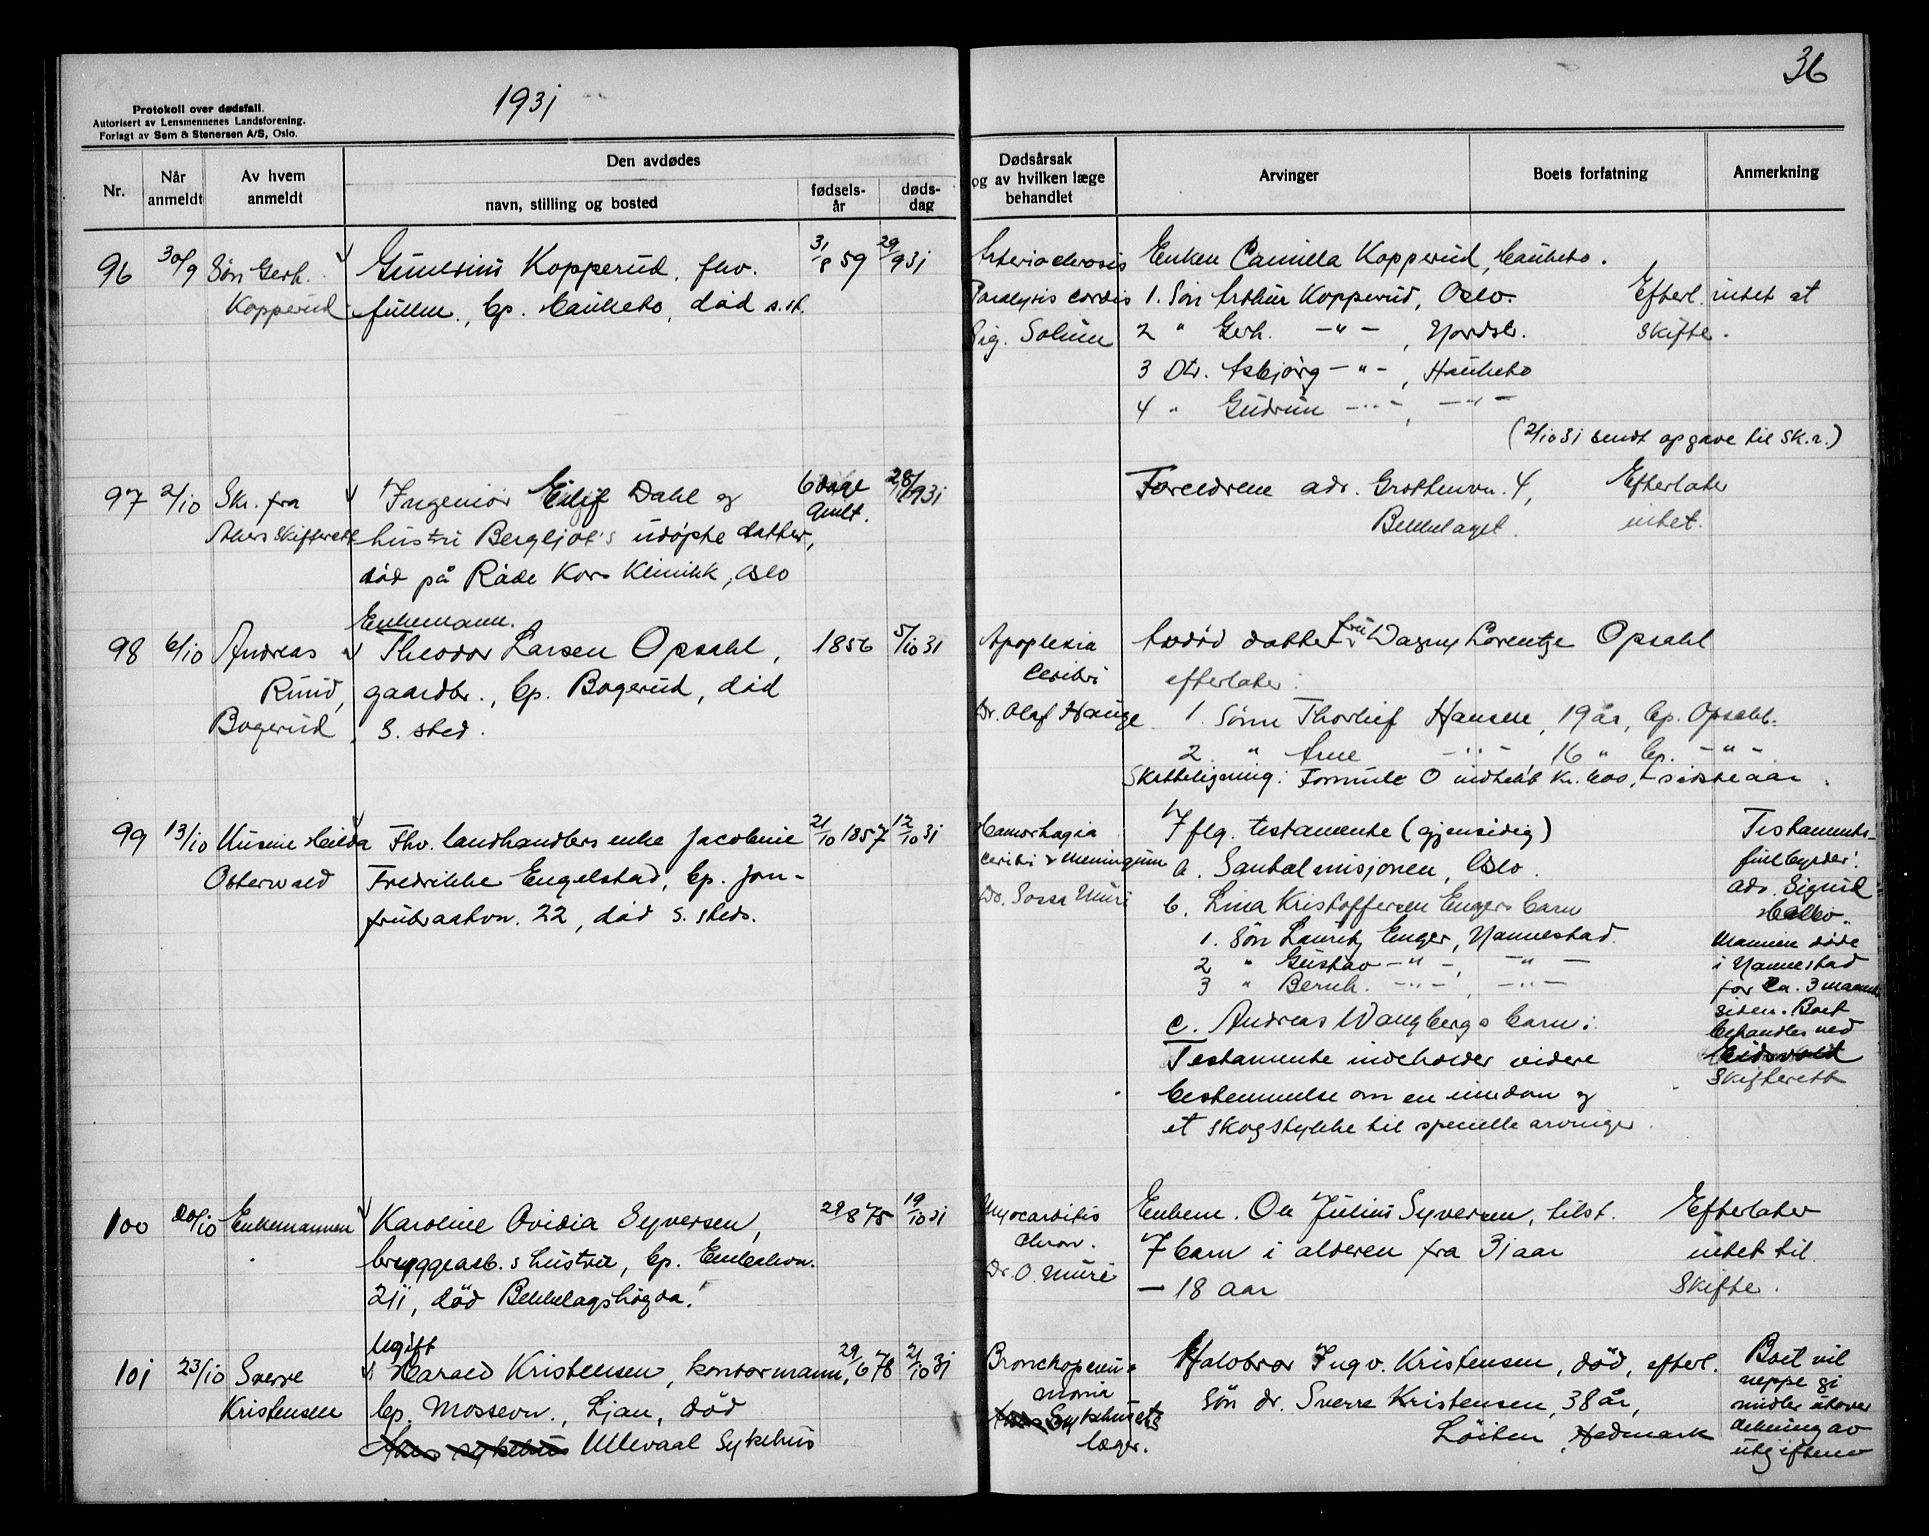 1931
36
Protokoll over dødsfall.
Autorisert av Lensmennenes Landsforening.
Forlagt av Sem & Stenersen A/S, Oslo.
Nr.
Når anmeldt
Av hvem anmeldt
Den avdødes
navn, stilling og bosted
fødsels-år
døds-dag
Dødsårsak og av hvilken læge behandlet
Arvinger
Boets forfatning
Anmerkning
96 30/9 Søn Gerh. Kopperud, fhv. 31/8 59 29/9 31
Kopperud
bp. Hauketo, død s. st.
Arteriosclerosis
Paralysis cordis
Sig. Solum
Enken Camilla Kopperud, Hauketo.
1. Søn Arthur Kopperud, Oslo.
2 " Gerh. -"- , Nordstr.
3 Dtr. Asbjørg -"- , Hauketo
4 " Gudrun -"- , -"-
Efterl. intet at
skifte.
(2/10 31 sendt opgave til Sk.r.)
97 2/10 Skr. fra
Akers Skifterett
Ingeniør Eilif Dahl og
hustru Bergljot's udøpte datter,
død på Røde Kors Klinikk, Oslo
6 dage
gmlt.
28/9 31
Foreldrene adr. Grottenvn. 4,
Bekkelaget.
Efterlater
intet.
98 6/10 Andreas
Ruud,
Bogerud
Enkemann.
Theodor Larsen Opsahl,
gaardbr., bp. Bogerud, død
s. sted.
1856 5/10 31
Apoplexia
cerebri
Dr. Olaf Hauge
Avdød datter fru Dagny Lorentze Opsahl
efterlater:
1. Sønn Thorleif Hansen, 19 år, bp. Opsahl.
2. " Arne -"- 16 " bp. -"-
Skatteligning: Formue 0 indtekt kr. 600,- sidste aar.
99 13/10
Osterwald
Fhv. landhandlers enke Jacobine
Fredrikke Engelstad, bp. Jom-
frubraatvn. 22, død s. steds.
21/10 1857 12/10 31
Hæmorhagia
cerebri & meningum
7 flg. testamente (gjensidig)
a. Santalmisjonen, Oslo.
b. Lina Kristoffersen Engers barn
1. Søn Lauritz Enger, Nannestad.
2 " Gustav -"-, -"-
3 " Bernh. -"-, -"-
c. Andreas Wangbergs barn:
Testamente indeholder videre
bestemmelse om en eiendom og
et skogstykke til spesielle arvinger.
Testaments-
fuldbyrder:
adv. Sigurd
Mannen døde
i Nannestad
for ca. 3 maaneder
siden. Boet
behandles ved
Eidsvold
Skifterett
100 20/10 Enkemannen
Karoline Ovidia Syversen,
bryggearb.s hustru, bp.
211, død Bekkelagshøgda.
29/8 75 19/10 31
Myocarditis
chron.
Dr. O. Muri
Enkem. Ole Julius Syversen, tilst.
7 barn i alderen fra 31 aar
— 18 aar
Efterlater
intet til
Skifte.
101 23/10 Sverre
Kristensen
Ugift
Harald Kristensen, kontormann,
bp. Mossevn., Ljan, død
Akers sykehus Ullevaal Sykehus
29/6 78 21/10 31
Bronchopneu-
monia
Akers Sykehusets
læger.
Halvbror Ingv. Kristensen, død, efterl.
Søn dr. Sverre Kristensen, 38 år,
Løiten, Hedmark
Boet vil
neppe gi
midler utover
dekning av
utgiftene